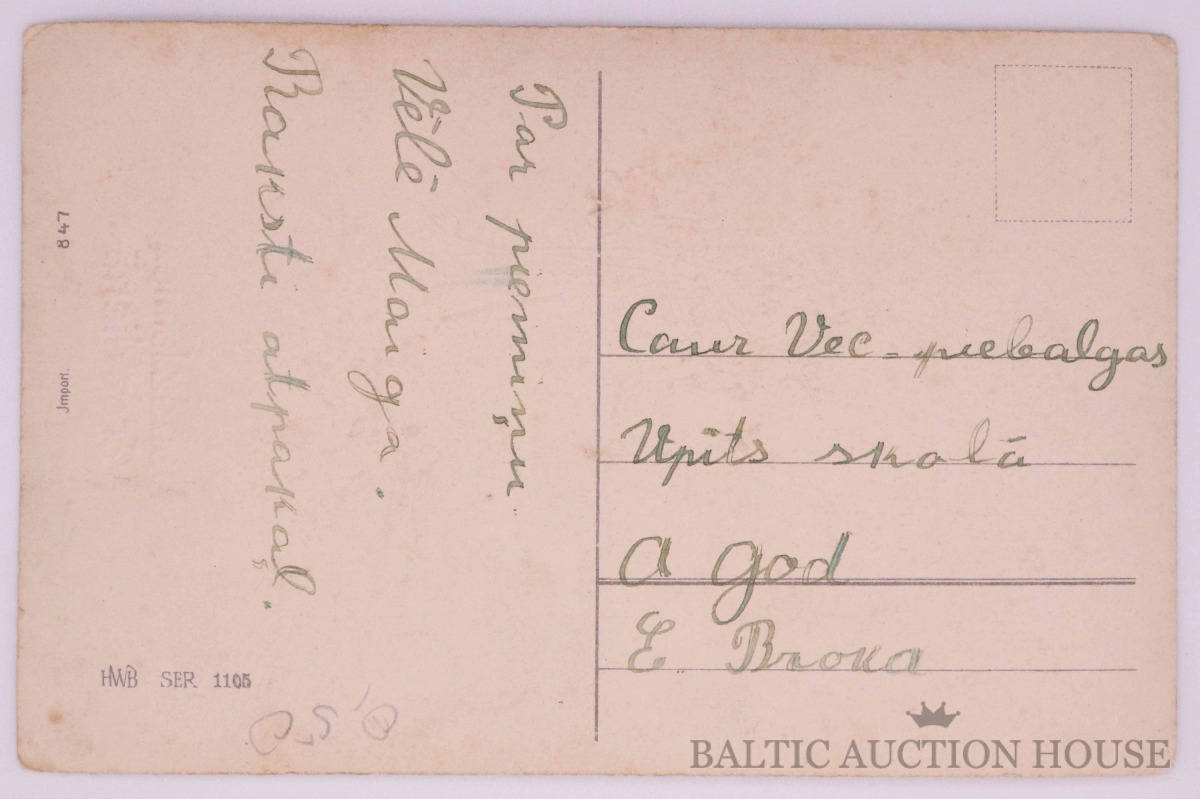 Par piemiņu.
Vēlē Maiga.
Raksti atpakaļ.
Caur Vec-piebalgas
Upīts skolā
A god
E. Broka
847
Import.
HWB SER 1105
0,50
BALTIC AUCTION HOUSE